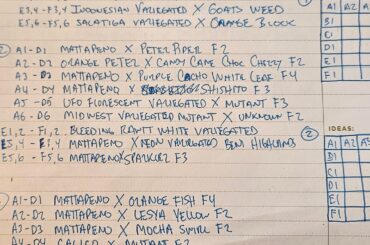 E3,4 - F3,4 INDONESIAN VARIEGATED X GOATS WEED
E5,6 - F5,6 SACATIGA VARIEGATED X ORANGE BLOCK
A1 A2 A
B1
C1
D1
E1
F1
2 A1 - D1 MATTAPENO X PETER PIPER F2
A2 - D2 ORANGE PETER X CANDY CANE CHOC CHERRY F2
A3 - D3 MATTAPENO X PURPLE WHITE LEAF F4
A4 - D4 MATTAPENO X SHISHITO F3
A5 - D5 UFO FLORESCENT VARIEGATED X MUTANT F3
A6 - D6 MIDWEST VARIEGATED MUTANT X UNKNOWN F2
E1,2 - F1,2 BLEEDING WHITE VARIEGATED
E3,4 - F3,4 MATTAPENO X NEON VARIEGATED BENI HIGHLANDS
E5,6 - F5,6 MATTAPENO X SPARKLER F3
2
IDEAS:
A1 A2 A3
B1
C1
D1
E1
F1
A1 - D1 MATTAPENO X ORANGE FISH F4
A2 - D2 MATTAPENO X LESYA YELLOW F2
A3 - D3 MATTAPENO X MOCHA SWIRL F2
A4 - D4 CALICO X MUTANT F2